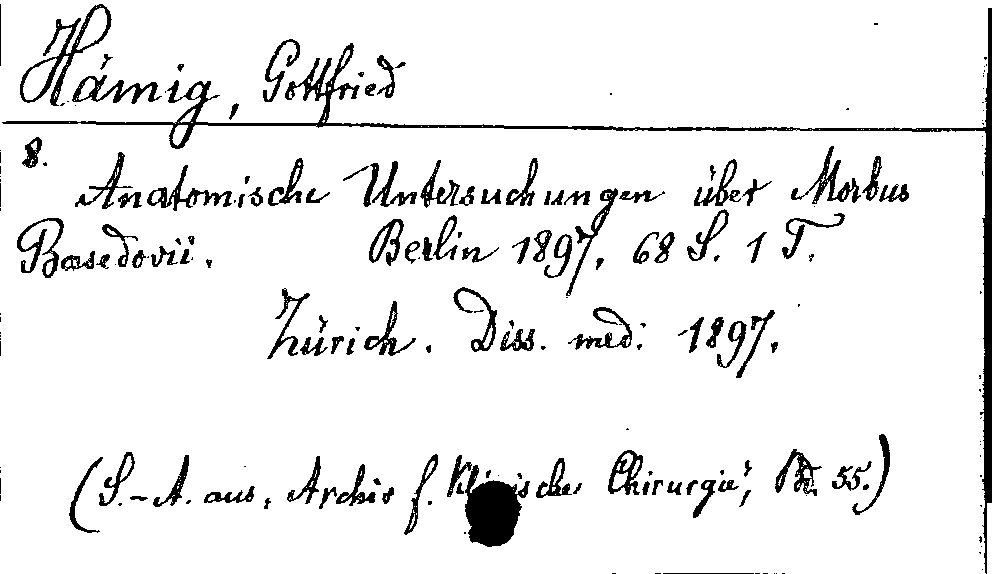 Hämig, Gottfried
8.
Anatomische Untersuchungen über Morbus
Basedovii. Berlin 1897. 68 S. 1 T.
Zürich. Diss. med. 1897.
(S.-A. aus, Archiv f. Klinische Chirurgie", Bd. 55.)